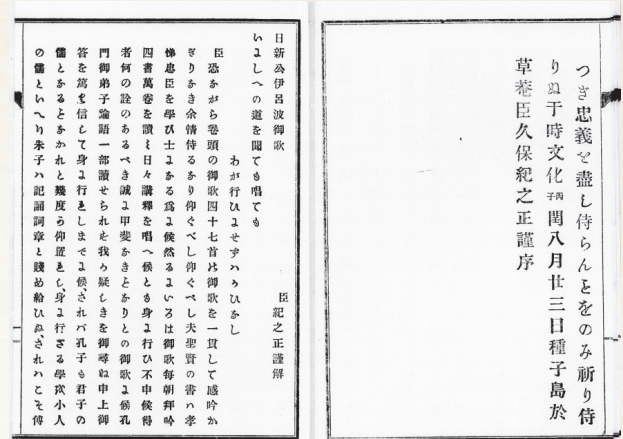 つき忠義を盡し侍らんとをのみ祈り侍
りぬ于時文化丙子閏八月廿三日種子島於
草菴臣久保紀之正謹序
日新公伊呂波御歌
臣 紀之正謹解
いよしへの道を聞ても唱ても
わが行ひよせずハかひなし
臣恐ながら巻頭の御歌四十七首は御歌を一貫して感吟か
ぎりなき余情侍るなり仰ぐべし仰ぐべし夫聖賢の書ハ孝
悌忠臣を學び士よなる為よ候然るよいろは御歌毎朝拜吟
四書萬巻を讀ミ日々講釋を唱へ候とも身よ行ひ不申候得
者何の詮のあるべき誠よ甲斐なきとなりとの御歌よ候孔
門御弟子論語一部讀せられを我ら疑しきを御尋ね申上御
答を篤を信して身よ行をしまでよ候されバ孔子も君子の
儒となるとなかれと幾度う仰置をし身よ行ざる學ハ小人
の儒といへり朱子ハ記誦詞章と賤め給ひぬされハこそ傅